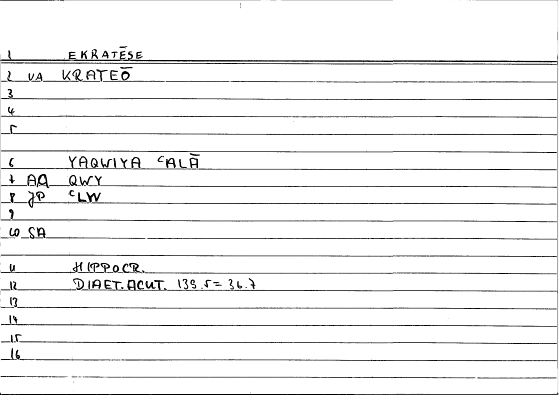 1 EKRATĒSE
2 VA KRATEŌ
3
4
5
6 YAQWIYA ʿALĀ
7 AQ QWY
8 JP ʿLW
9
10 SA
11 HIPPOCR.
12 DIAET.ACUT. 139.5=36.7
13
14
15
16